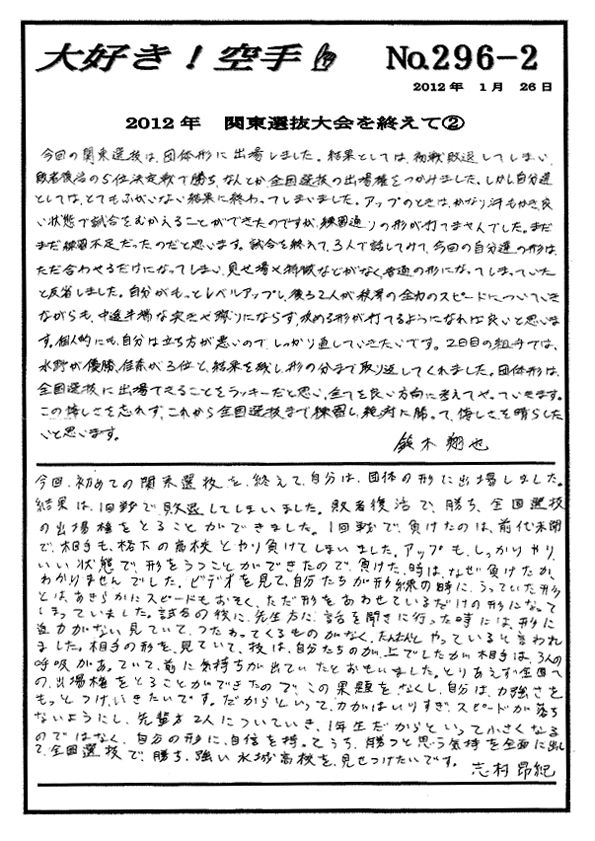 大好き！空手 No.296-2
2012年 1月 26日
2012年 関東選抜大会を終えて②
今回の関東選抜は、団体形に出場しました。結果としては、初戦敗退してしまい、
敗者復活の5位決定戦で勝ち、なんとか全国選抜の出場権をつかみました。しかし自分達
としては、とてもふがいない結果に終わってしまいました。アップのときは、かなり汗もかき良
い状態で試合をむかえることができたのですが、練習通りの形が打てませんでした。まだ
まだ練習不足だったのだと思います。試合を終えて、3人で話してみて、今回の自分達の形は、
ただ合わせるだけになってしまい、見せ場や特徴などがなく普通の形になってしまっていた
と反省しました。自分がもっとレベルアップし、後ろ2人が稜の全力のスピードについていき
ながらも、中途半端な突きや蹴りにならず、攻める形が打てるようになれば良いと思いま
す。個人的にも、自分は立ち方が悪いのでしっかり直していきたいです。2日目の組手では、
水野が優勝、信来が3位と、結果を残し、形の分まで取り返してくれました。団体形は、
全国選抜に出場できることをラッキーだと思い、全てを良い方向に考えてやっていきます。
この悔しさを忘れず、これから全国選抜まで練習し、絶対に勝って、悔しさを晴らした
いと思います。
鈴木 翔也
今回、初めての関東選抜を、終えて、自分は、団体の形に出場しました。
結果は、1回戦で敗退してしまいました。敗者復活で、勝ち、全国選抜
の出場権をとることができました。1回戦で、負けたのは、前代未聞
で、相手も、格下の高校とやり負けてしまいました。アップも、しっかりやり、
いい状態で、形をうつことができたので、負けた、時は、なぜ負けたか、
わかりませんでした。ビデオを見て、自分たちが形練の時に、うっていた形
とは、あきらかにスピードもおそく、ただ形をあわせているだけの形になって
しまっていました。試合の後に、先生方に話を聞きに行った時には、形に
迫力がない、見ていて、つたわってくるものがなく、たんたんとやっていると言われ
ました。相手の形を、見ていて、技は、自分たちのが、上でしたが、相手は、3人の
呼吸があっていて、前に気持ちが出ていたとおもいました。とりあえず全国へ
の、出場権をとることができたので、この課題をなくし、自分は、力強さを
もっとつけていきたいです。だからといって、力がはいりすぎ、スピードが落ち
ないようにし、先輩方2人についていき、1年生だからといって小さくなる
のではなく、自分の形に、自信を持ってうち、勝つと思う気持を全面に出し
て、全国選抜で、勝ち、強い水城高校を、見せつけたいです。
志村 昂紀